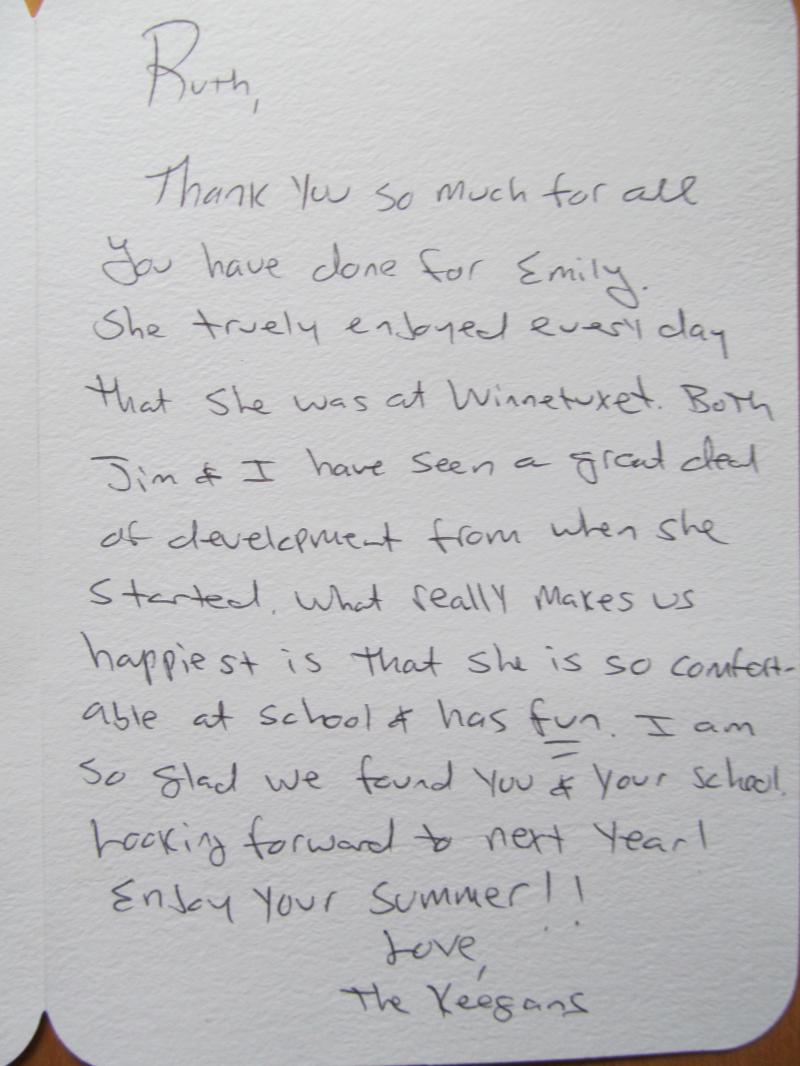 Ruth,
Thank you so much for all
you have done for Emily.
She truely enjoyed every day
that she was at Winnetuxet. Both
Jim & I have seen a great deal
of development from when she
started. What really makes us
happiest is that she is so comfort-
able at school & has fun. I am
so glad we found you & your school.
Looking forward to next year!
Enjoy your summer!!
Love,
The Keegans